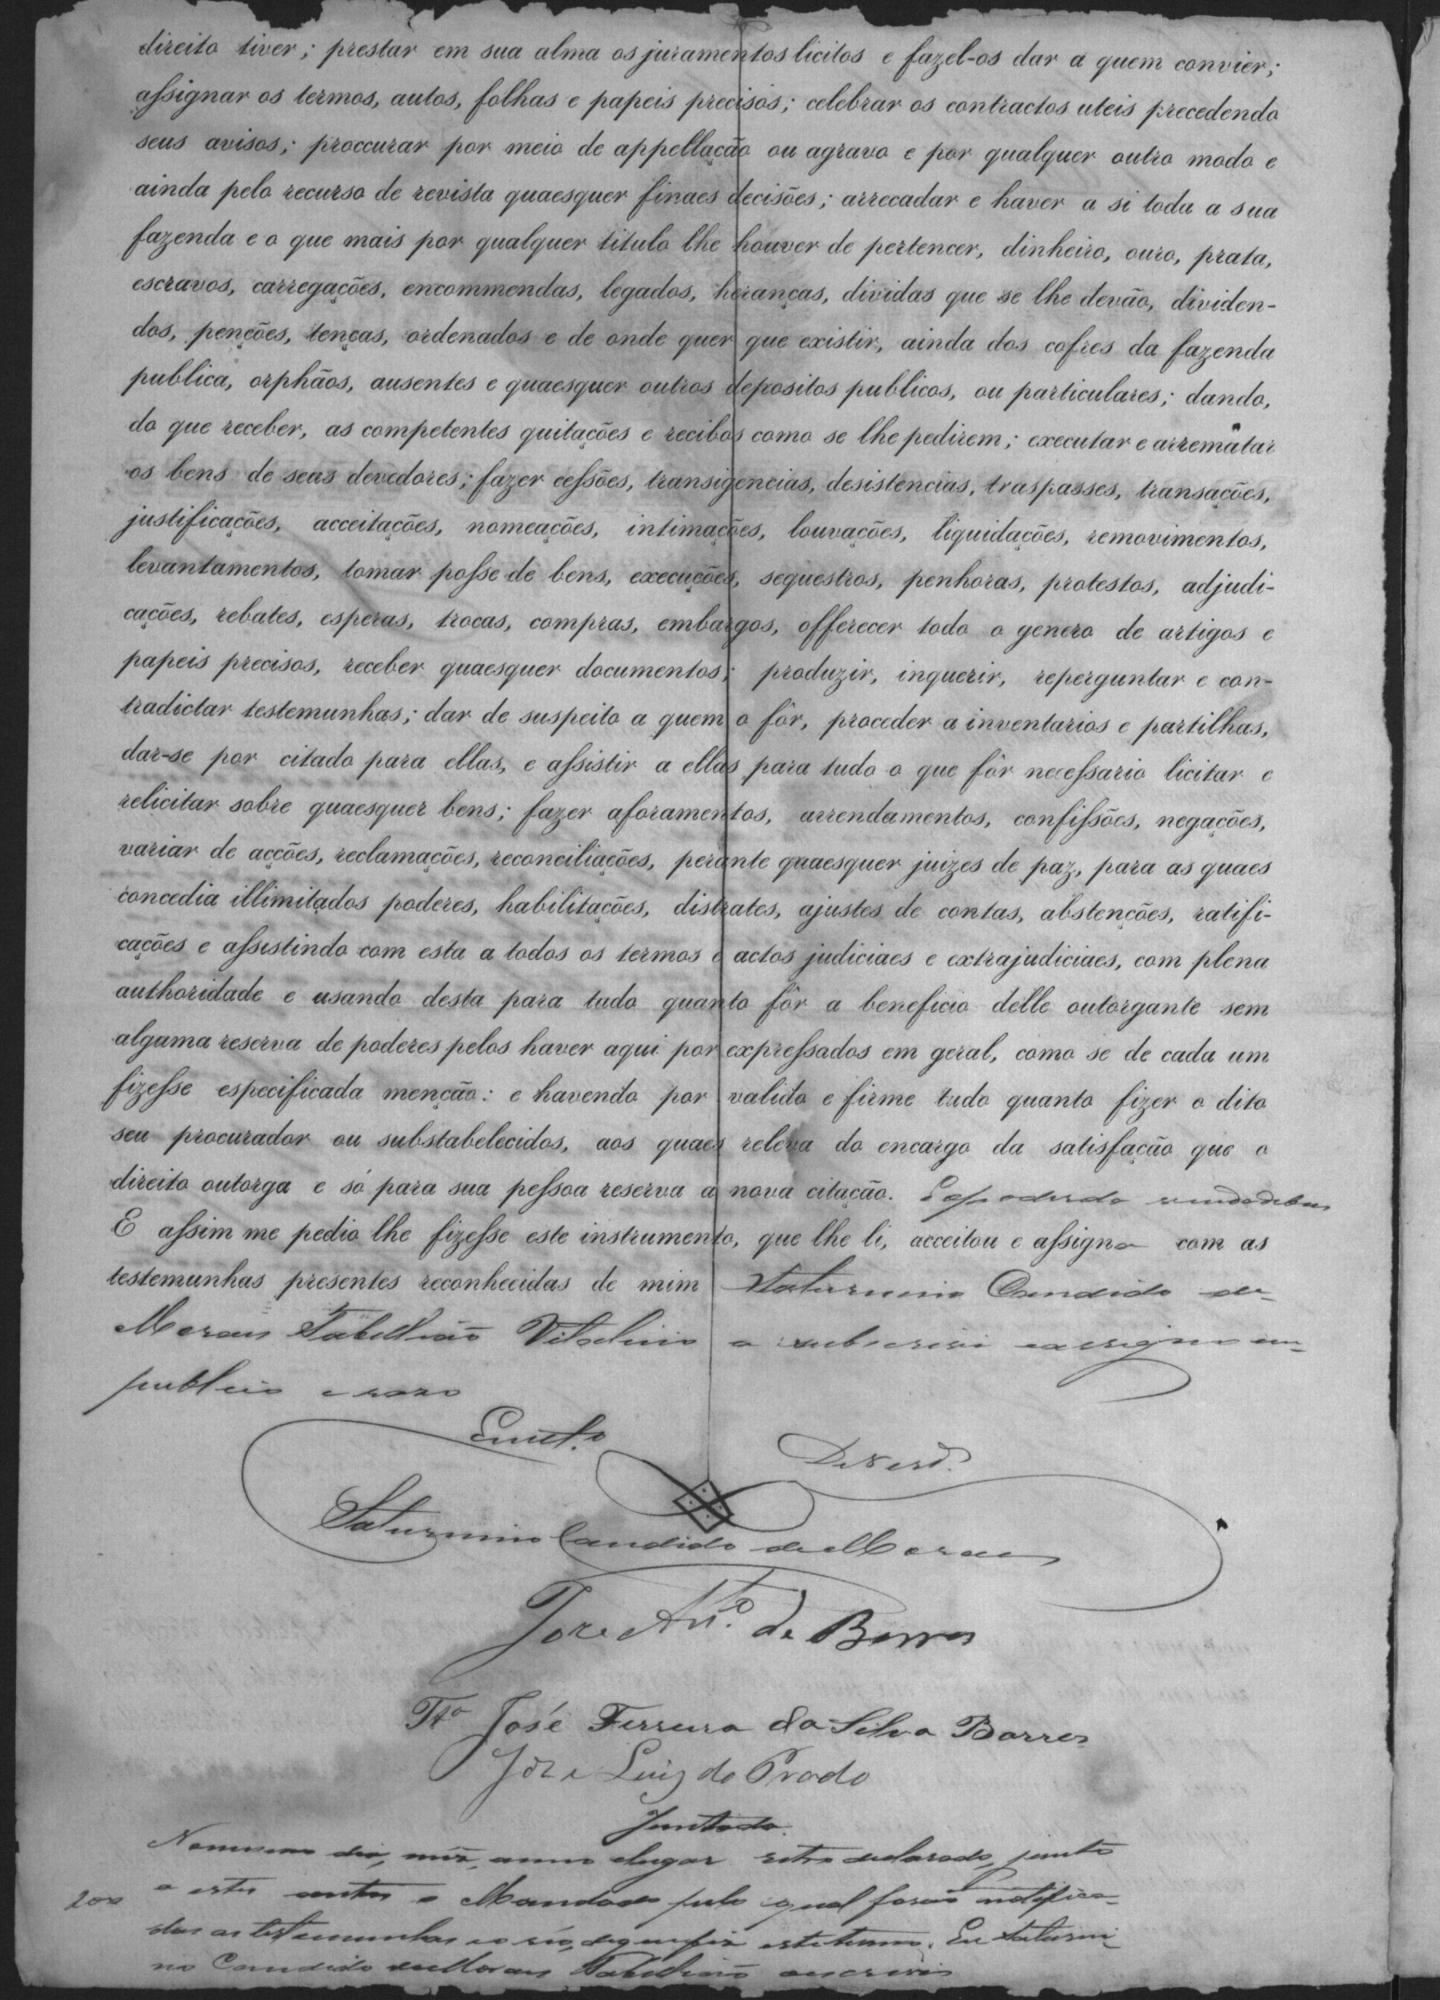 direito tiver; prestar em sua alma os juramentos licitos e fazel-os dar a quem convier;
assignar os termos, autos, folhas e papeis precisos; celebrar os contractos uteis precedendo
seus avisos; proccurar por meio de appellação ou agravo e por qualquer outro modo e
ainda pelo recurso de revista quaesquer finaes decisões; arrecadar e haver a si toda a sua
fazenda e o que mais por qualquer titulo lhe houver de pertencer, dinheiro, ouro, prata,
escravos, carregações, encommendas, legados, heranças, dividas que se lhe devão, dividen-
dos, penções, tenças, ordenados e de onde quer que existir, ainda dos cofres da fazenda
publica, orphãos, ausentes e quaesquer outros depositos publicos, ou particulares; dando,
do que receber, as competentes quitações e recibos como se lhe pedirem; executar e arrematar
os bens de seus devedores; fazer cessões, transigencias, desistencias, traspasses, transações,
justificações, acceitações, nomeações, intimações, louvações, liquidações, removimentos,
levantamentos, tomar posse de bens, execuções, sequestros, penhoras, protestos, adjudi-
cações, rebates, esperas, trocas, compras, embargos, offerecer todo o genero de artigos e
papeis precisos, receber quaesquer documentos; produzir, inquerir, reperguntar e con-
tradictar testemunhas; dar de suspeito a quem o fôr, proceder a inventarios e partilhas,
dar-se por citado para ellas, e assistir a ellas para tudo o que fôr necessario licitar e
relicitar sobre quaesquer bens; fazer aforamentos, arrendamentos, confissões, negações,
variar de acções, reclamações, reconciliações, perante quaesquer juizes de paz, para as quaes
concedia illimitados poderes, habilitações, distrates, ajustes de contas, abstenções, ratifi-
cações e assistindo com esta a todos os termos e actos judiciaes e extrajudiciaes, com plena
authoridade e usando desta para tudo quanto fôr a beneficio delle outorgante sem
alguma reserva de poderes pelos haver aqui por expressados em geral, como se de cada um
fizesse especificada menção: e havendo por valido e firme tudo quanto fizer o dito
seu procurador ou substabelecidos, aos quaes releva do encargo da satisfação que o
direito outorga e só para sua pessoa reserva a nova citação.
E assim me pedio lhe fizesse este instrumento, que lhe li, acceitou e assigna com as
testemunhas presentes reconhecidas de mim Saturnino Candido de
Moraes Tabellião Vitalicio o subscrevi e assigno em
publico e raso
Em test.o De verd.e
Saturnino Candido de Moraes
Jose Ant.o de Barros
Tta José Ferreira da Silva Barros
José Luiz do Prado
Juntada.
No mesmo dia, mez, anno e lugar retro declarado, junto
200 a estes autos o Mandado pelo qual forão notifica-
das as testemunhas e o réo, do que fiz este termo. Eu Saturni-
no Candido de Moraes Tabellião o escrevi